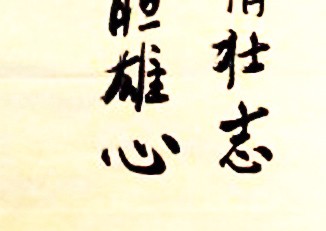 壮志
胆雄心